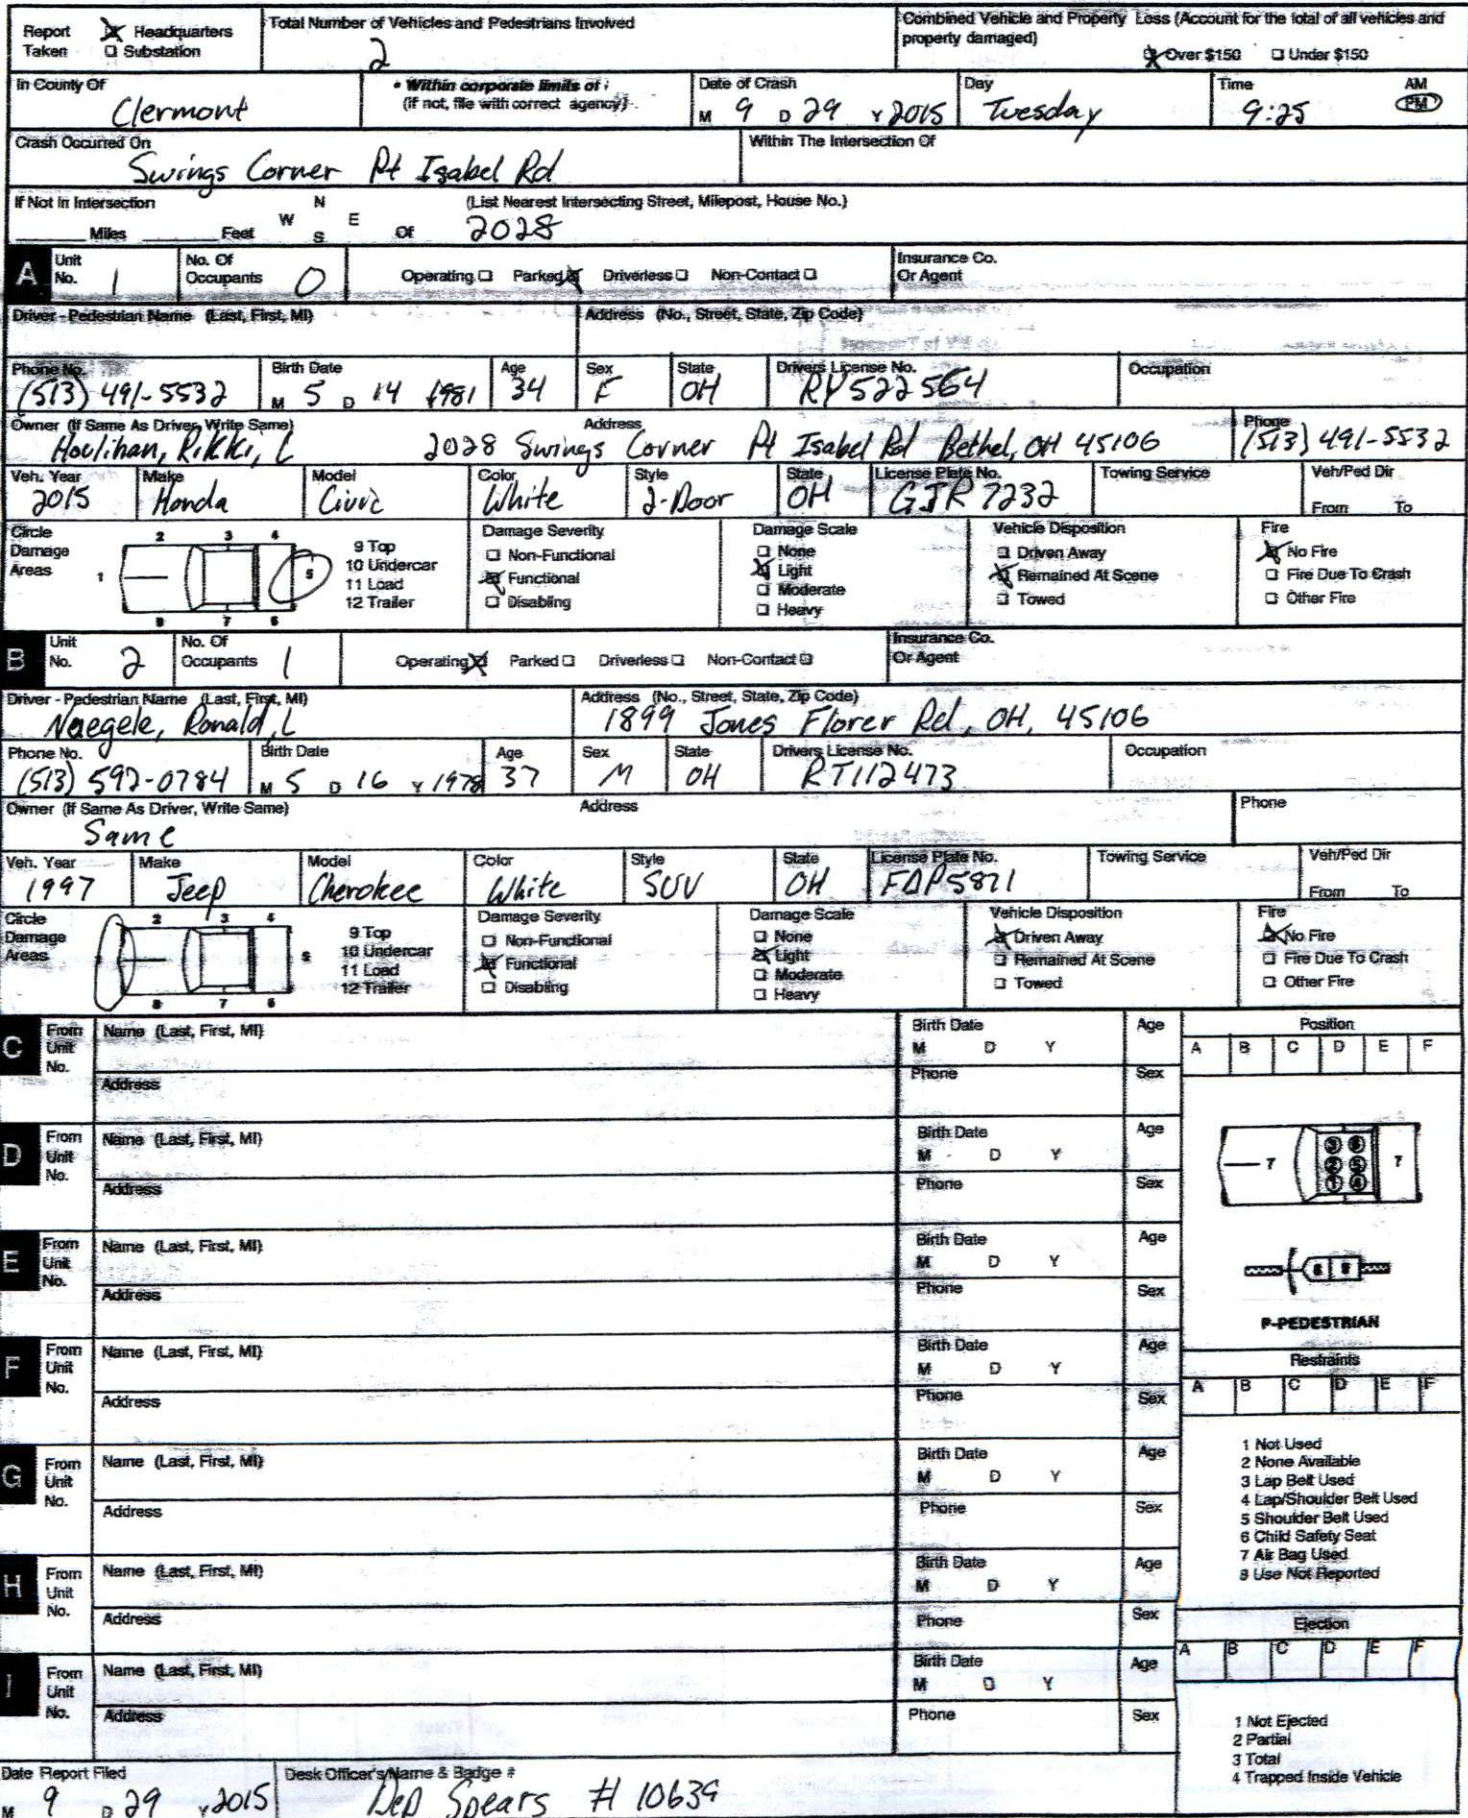 Report Taken ☒ Headquarters ☐ Substation
Total Number of Vehicles and Pedestrians Involved 2
Combined Vehicle and Property Loss (Account for the total of all vehicles and property damaged) ☒ Over $150 ☐ Under $150
In County Of Clermont
• Within corporate limits of : (if not, file with correct agency)
Date of Crash M 9 D 29 Y 2015
Day Tuesday
Time 9:25 AM PM
Crash Occurred On Swings Corner Pt Isabel Rd
Within The Intersection Of
If Not In Intersection
Miles Feet N W E S Of
(List Nearest Intersecting Street, Milepost, House No.) 2028
A Unit No. 1 No. Of Occupants 0 Operating ☐ Parked ☒ Driverless ☐ Non-Contact ☐ Insurance Co. Or Agent
Driver - Pedestrian Name (Last, First, MI) Address (No., Street, State, Zip Code)
Phone No. (513) 491-5532 Birth Date M 5 D 14 1981 Age 34 Sex F State OH Drivers License No. RY522564 Occupation
Owner (If Same As Driver, Write Same) Houlihan, Rikki, L Address 2028 Swings Corner Pt Isabel Rd Bethel, OH 45106 Phone (513) 491-5532
Veh. Year 2015 Make Honda Model Civic Color White Style 2-Door State OH License Plate No. GJR 7232 Towing Service Veh/Ped Dir From To
Circle Damage Areas 1 2 3 4 5 6 7 8
9 Top
10 Undercar
11 Load
12 Trailer
Damage Severity ☐ Non-Functional ☒ Functional ☐ Disabling
Damage Scale ☐ None ☒ Light ☐ Moderate ☐ Heavy
Vehicle Disposition ☐ Driven Away ☒ Remained At Scene ☐ Towed
Fire ☒ No Fire ☐ Fire Due To Crash ☐ Other Fire
B Unit No. 2 No. Of Occupants 1 Operating ☒ Parked ☐ Driverless ☐ Non-Contact ☐ Insurance Co. Or Agent
Driver - Pedestrian Name (Last, First, MI) Naegele, Ronald, L Address (No., Street, State, Zip Code) 1899 Jones Florer Rd, OH, 45106
Phone No. (513) 592-0784 Birth Date M 5 D 16 Y 1978 Age 37 Sex M State OH Drivers License No. RT112473 Occupation
Owner (If Same As Driver, Write Same) Same Address Phone
Veh. Year 1997 Make Jeep Model Cherokee Color White Style SUV State OH License Plate No. FDP5871 Towing Service Veh/Ped Dir From To
Circle Damage Areas 2 3 4 5 6 7 8
9 Top
10 Undercar
11 Load
12 Trailer
Damage Severity ☐ Non-Functional ☒ Functional ☐ Disabling
Damage Scale ☐ None ☒ Light ☐ Moderate ☐ Heavy
Vehicle Disposition ☒ Driven Away ☐ Remained At Scene ☐ Towed
Fire ☒ No Fire ☐ Fire Due To Crash ☐ Other Fire
C From Unit No. Name (Last, First, MI) Birth Date M D Y Age
Address Phone Sex
D From Unit No. Name (Last, First, MI) Birth Date M D Y Age
Address Phone Sex
E From Unit No. Name (Last, First, MI) Birth Date M D Y Age
Address Phone Sex
F From Unit No. Name (Last, First, MI) Birth Date M D Y Age
Address Phone Sex
G From Unit No. Name (Last, First, MI) Birth Date M D Y Age
Address Phone Sex
H From Unit No. Name (Last, First, MI) Birth Date M D Y Age
Address Phone Sex
I From Unit No. Name (Last, First, MI) Birth Date M D Y Age
Address Phone Sex
Position
A B C D E F
7 3 6 2 5 1 4 7
8 9
P-PEDESTRIAN
Restraints
A B C D E F
1 Not Used
2 None Available
3 Lap Belt Used
4 Lap/Shoulder Belt Used
5 Shoulder Belt Used
6 Child Safety Seat
7 Air Bag Used
8 Use Not Reported
Ejection
A B C D E F
1 Not Ejected
2 Partial
3 Total
4 Trapped Inside Vehicle
Date Report Filed M 9 D 29 Y 2015
Desk Officer's Name & Badge # Dep Spears # 10639